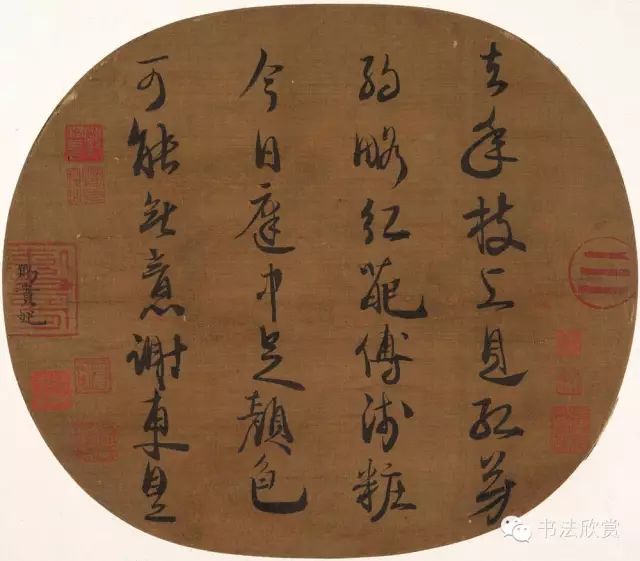 去年枝上見孤芳
約略紅葩傅淺粧
今日庭中足顏色
可能無意謝東皇
賜貴妃
书法欣赏